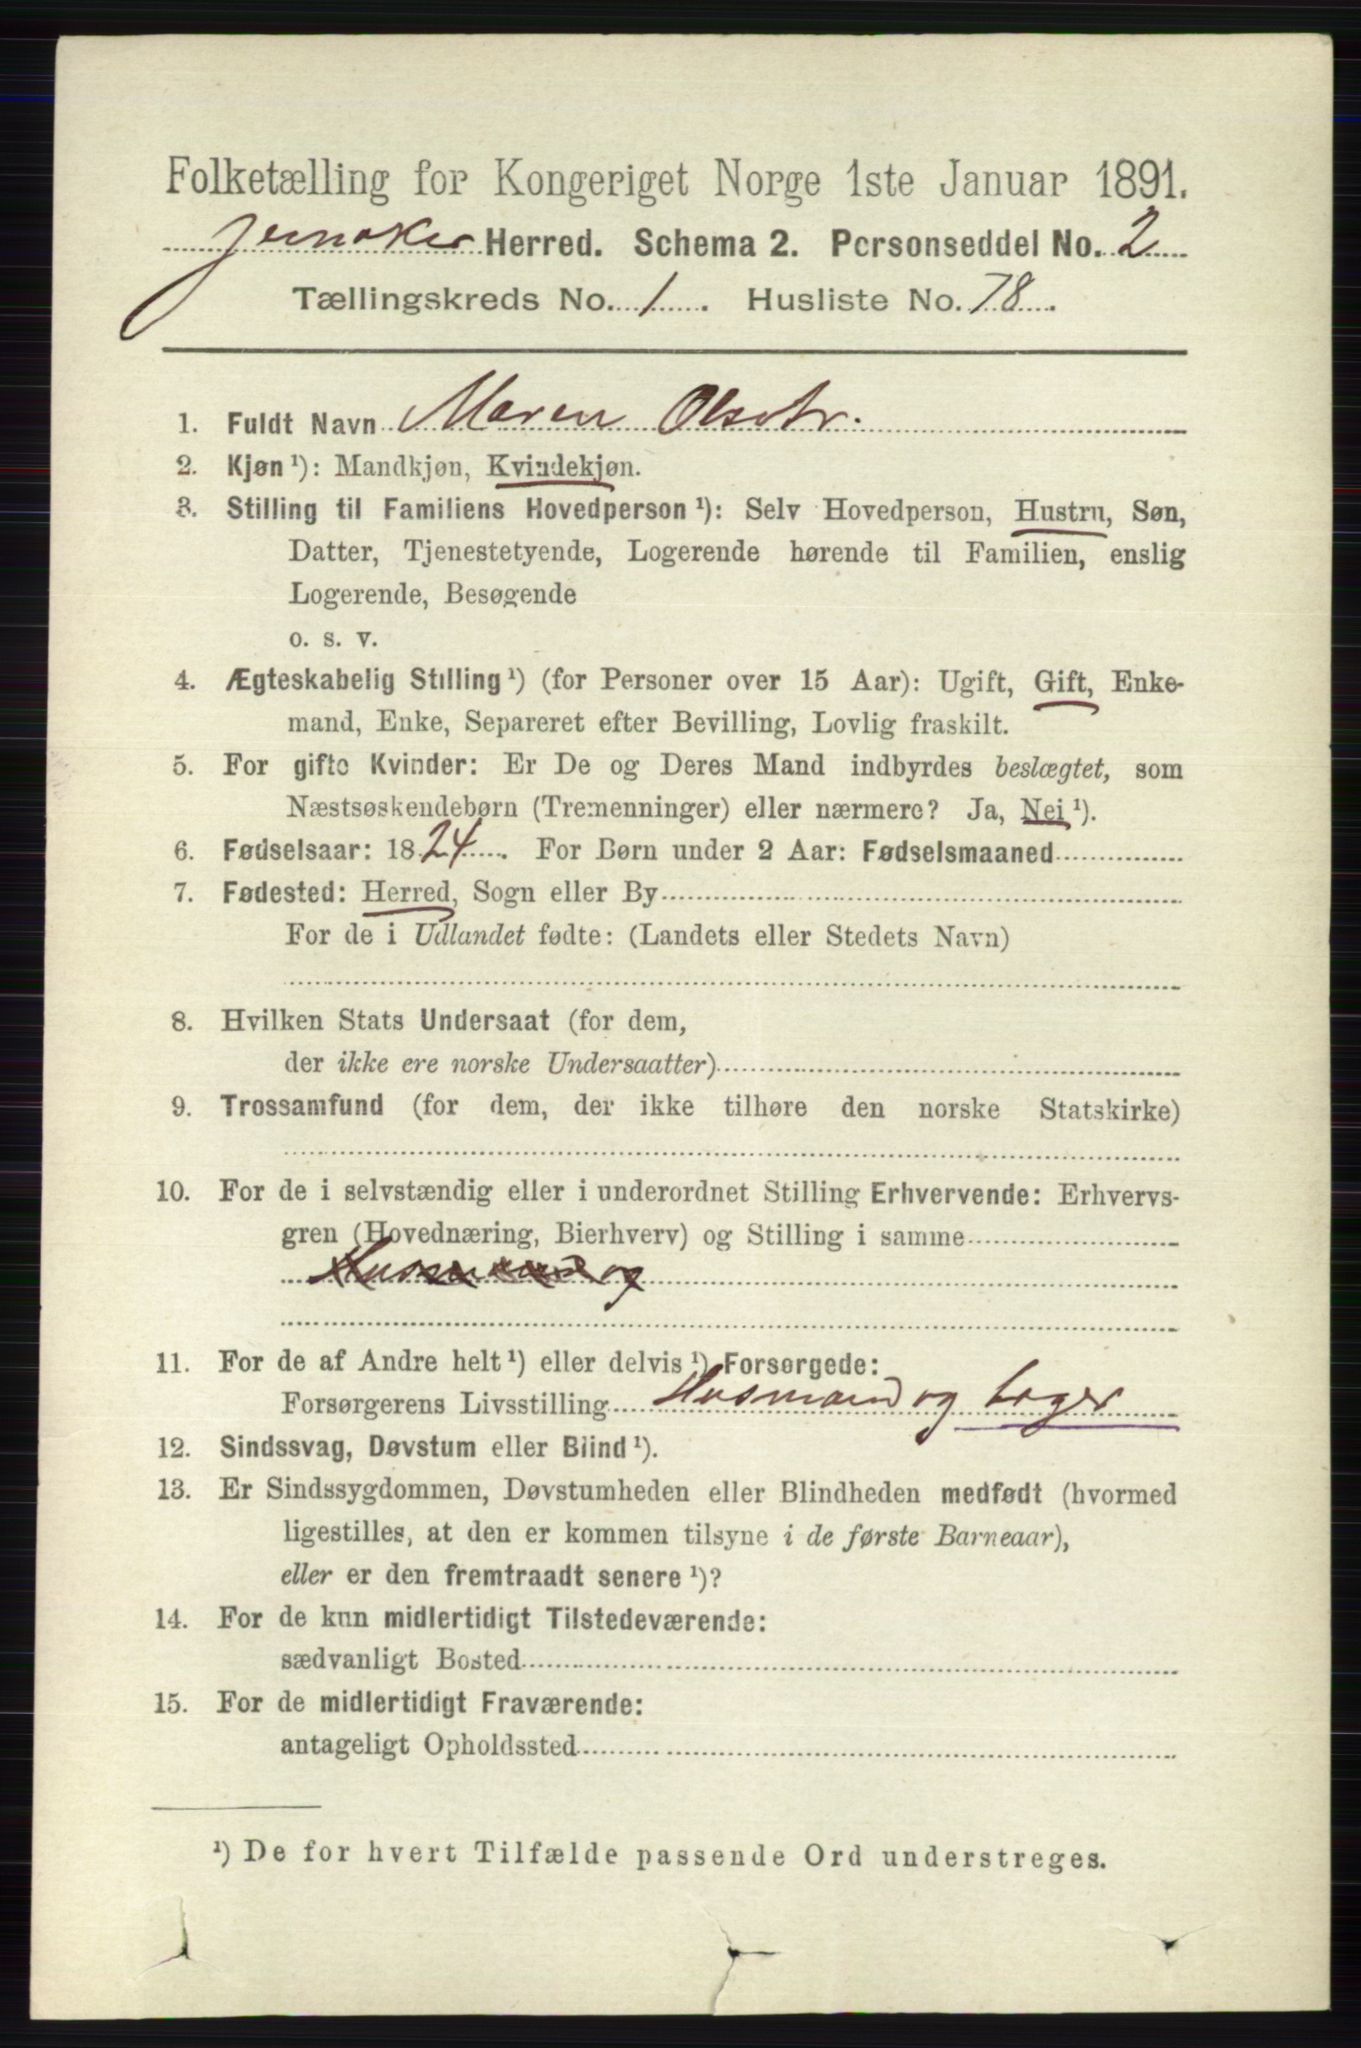 Folketælling for Kongeriget Norge 1ste Januar 1891.
Jevnaker Herred. Schema 2. Personseddel No. 2
Tællingskreds No. 1. Husliste No. 78.
1. Fuldt Navn Maren Olsdtr.
2. Kjøn ¹): Mandkjøn, Kvindekjøn.
3. Stilling til Familiens Hovedperson ¹): Selv Hovedperson, Hustru, Søn,
Datter, Tjenestetyende, Logerende hørende til Familien, enslig
Logerende, Besøgende
o. s. v.
4. Ægteskabelig Stilling ¹) (for Personer over 15 Aar): Ugift, Gift, Enke-
mand, Enke, Separeret efter Bevilling, Lovlig fraskilt.
5. For gifte Kvinder: Er De og Deres Mand indbyrdes beslægtet, som
Næstsøskendebørn (Tremenninger) eller nærmere? Ja, Nei ¹).
6. Fødselsaar: 1824. For Børn under 2 Aar: Fødselsmaaned
7. Fødested: Herred, Sogn eller By
For de i Udlandet fødte: (Landets eller Stedets Navn)
8. Hvilken Stats Undersaat (for dem,
der ikke ere norske Undersaatter)
9. Trossamfund (for dem, der ikke tilhøre den norske Statskirke)
10. For de i selvstændig eller i underordnet Stilling Erhvervende: Erhvervs-
gren (Hovednæring, Bierhverv) og Stilling i samme
Husmand og
11. For de af Andre helt ¹) eller delvis ¹) Forsørgede:
Forsørgerens Livsstilling Husmand og
12. Sindssvag, Døvstum eller Blind ¹).
13. Er Sindssygdommen, Døvstumheden eller Blindheden medfødt (hvormed
ligestilles, at den er kommen tilsyne i de første Barneaar),
eller er den fremtraadt senere ¹)?
14. For de kun midlertidigt Tilstedeværende:
sædvanligt Bosted
15. For de midlertidigt Fraværende:
antageligt Opholdssted
¹) De for hvert Tilfælde passende Ord understreges.